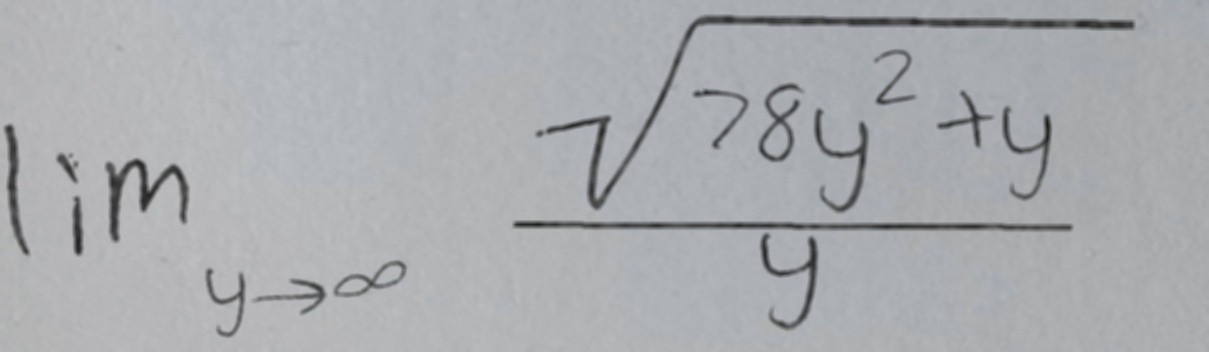 lim_{y→∞} \frac{\sqrt{78y^2+y}}{y}